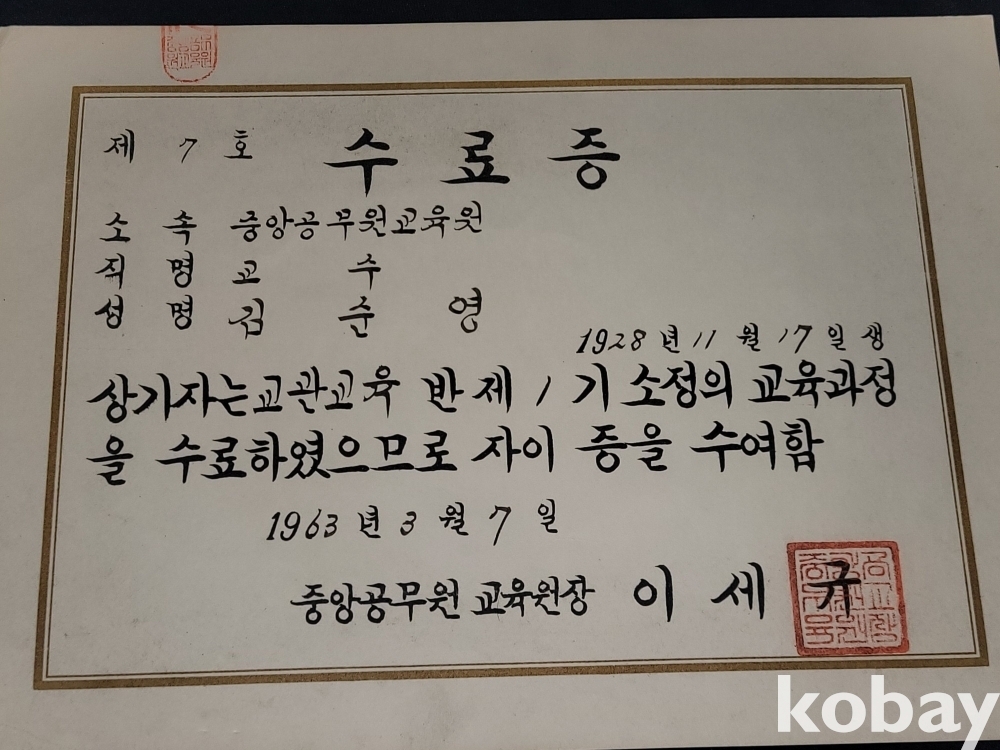 제 7 호 수료증
소 속 중앙공무원교육원
직 명 교 수
성 명 김 준 영
1928 년 11 월 17 일 생
상기자는교관교육 반 제 1 기 소정의 교육과정
을 수료하였으므로 자이 증을 수여함
1963 년 3 월 7 일
중앙공무원 교육원장 이 세 규
kobay